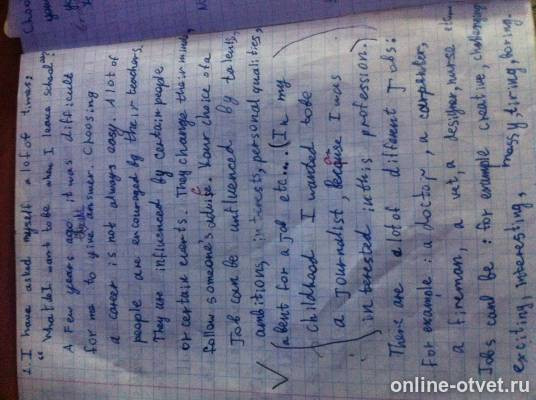 1. I have asked myself a lot of times:
"What do I want to be when I leave school?"
A few years ago it was difficult
for me to give answer. Choosing
a career is not always easy. A lot of
people are encouraged by their teachers.
They are influenced by certain people
or certain events. They change their minds,
follow someone's advice. Your choice of a
Job can be influenced by talents,
ambitions, interests, personal qualities,
talent for a job etc... (In my
childhood I wanted to be
a journalist, because I was
interested in this profession.)
There are a lot of different jobs:
For example: a doctor, a carpenter,
a fireman, a vet, a designer, nurse
Jobs can be: for example creative, challenging
exciting, interesting, messy, tiring, boring.
online-otvet.ru